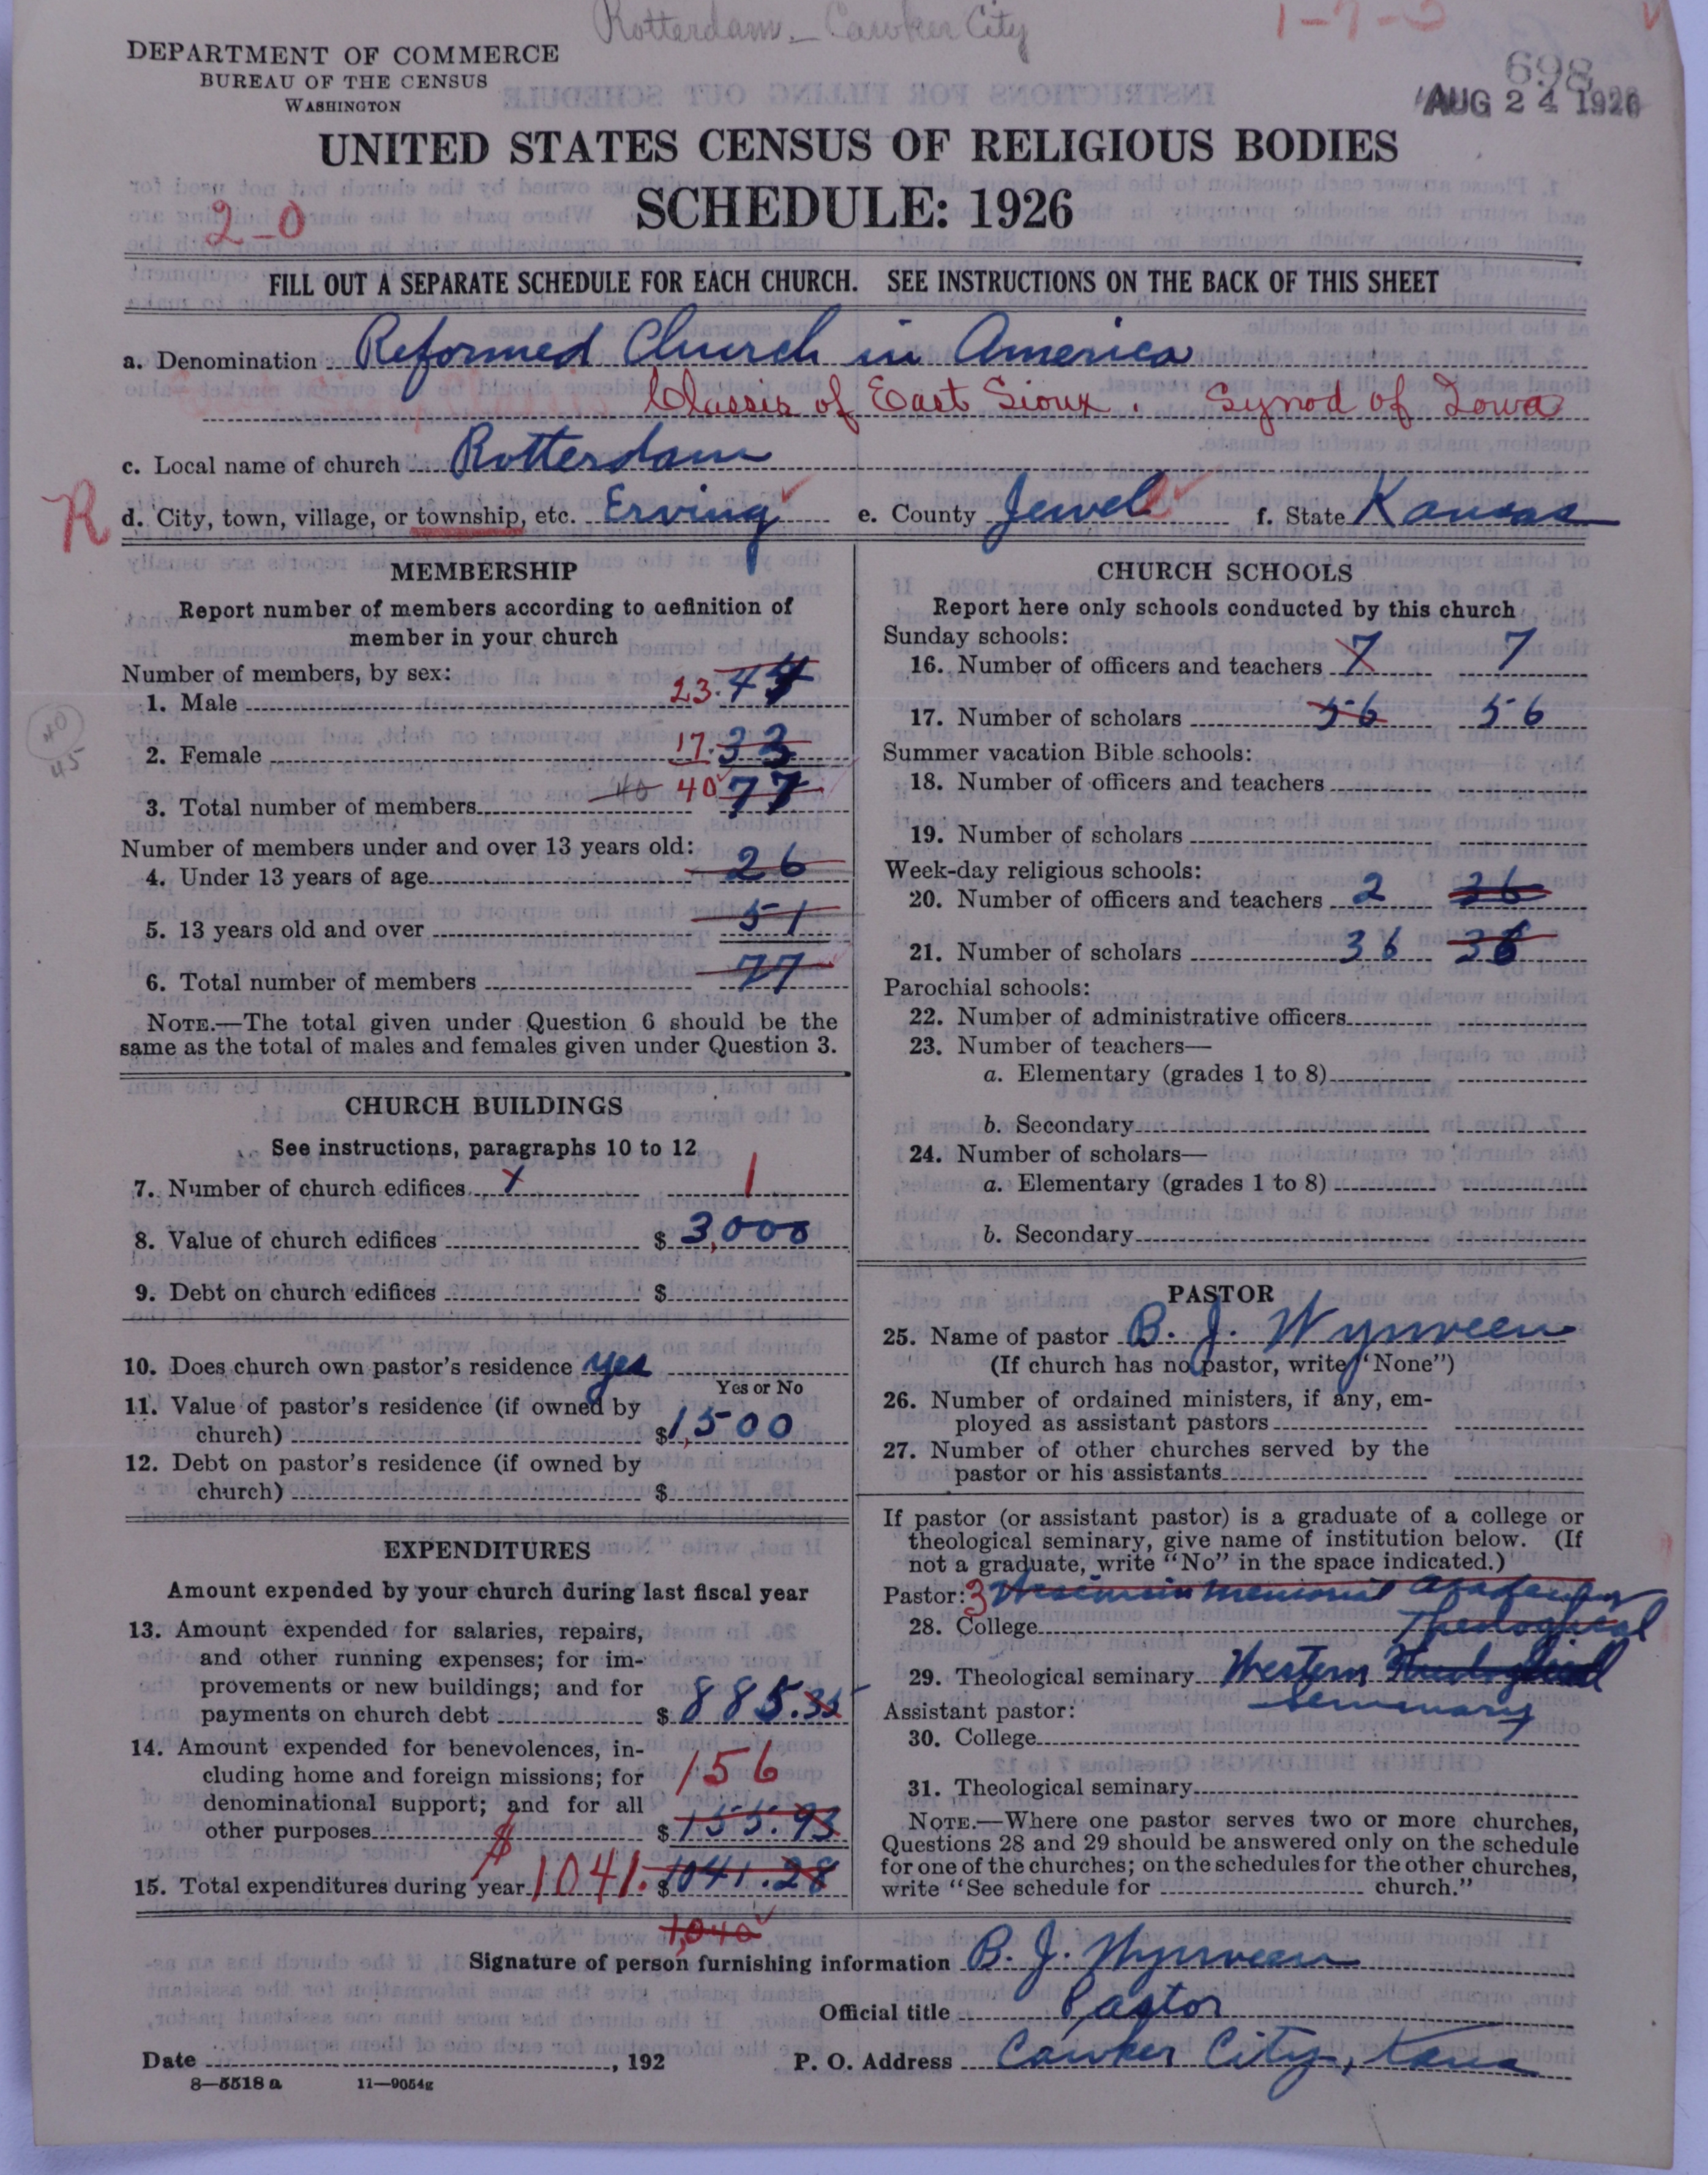 Rotterdam - Cawker City
1-7-3
DEPARTMENT OF COMMERCE
BUREAU OF THE CENSUS
WASHINGTON
698
AUG 24 1926
UNITED STATES CENSUS OF RELIGIOUS BODIES
SCHEDULE: 1926
2-0
FILL OUT A SEPARATE SCHEDULE FOR EACH CHURCH. SEE INSTRUCTIONS ON THE BACK OF THIS SHEET
a. Denomination Reformed Church in America
Classis of East Sioux. Synod of Iowa
c. Local name of church Rotterdam
R
d. City, town, village, or township, etc. Erving e. County Jewell f. State Kansas
MEMBERSHIP
Report number of members according to definition of
member in your church
Number of members, by sex:
1. Male 23. 44
2. Female 17. 33
3. Total number of members 40 40 77
40
45
Number of members under and over 13 years old:
4. Under 13 years of age 26
5. 13 years old and over 51
6. Total number of members 77
NOTE.—The total given under Question 6 should be the
same as the total of males and females given under Question 3.
CHURCH BUILDINGS
See instructions, paragraphs 10 to 12
7. Number of church edifices 1 1
8. Value of church edifices $ 3,000
9. Debt on church edifices $
10. Does church own pastor's residence yes
Yes or No
11. Value of pastor's residence (if owned by
church) $ 1,500
12. Debt on pastor's residence (if owned by
church) $
EXPENDITURES
Amount expended by your church during last fiscal year
13. Amount expended for salaries, repairs,
and other running expenses; for im-
provements or new buildings; and for
payments on church debt $ 885.35
14. Amount expended for benevolences, in-
cluding home and foreign missions; for
denominational support; and for all
other purposes $ 155.93
156
15. Total expenditures during year $1041. $ 1041.28
1,040
CHURCH SCHOOLS
Report here only schools conducted by this church
Sunday schools:
16. Number of officers and teachers 7 7
17. Number of scholars 56 56
Summer vacation Bible schools:
18. Number of officers and teachers
19. Number of scholars
Week-day religious schools:
20. Number of officers and teachers 2 36
21. Number of scholars 36 36
Parochial schools:
22. Number of administrative officers
23. Number of teachers—
a. Elementary (grades 1 to 8)
b. Secondary
24. Number of scholars—
a. Elementary (grades 1 to 8)
b. Secondary
PASTOR
25. Name of pastor B. J. Wynveen
(If church has no pastor, write "None")
26. Number of ordained ministers, if any, em-
ployed as assistant pastors
27. Number of other churches served by the
pastor or his assistants
If pastor (or assistant pastor) is a graduate of a college or
theological seminary, give name of institution below. (If
not a graduate, write "No" in the space indicated.)
Pastor: 3 Wisconsin Memorial Academy
28. College Theological
29. Theological seminary Western Theological
Seminary
Assistant pastor:
30. College
31. Theological seminary
NOTE.—Where one pastor serves two or more churches,
Questions 28 and 29 should be answered only on the schedule
for one of the churches; on the schedules for the other churches,
write "See schedule for church."
Signature of person furnishing information B. J. Wynveen
Official title Pastor
Date , 192 P. O. Address Cawker City, Kans
8—5518 a 11—9054g